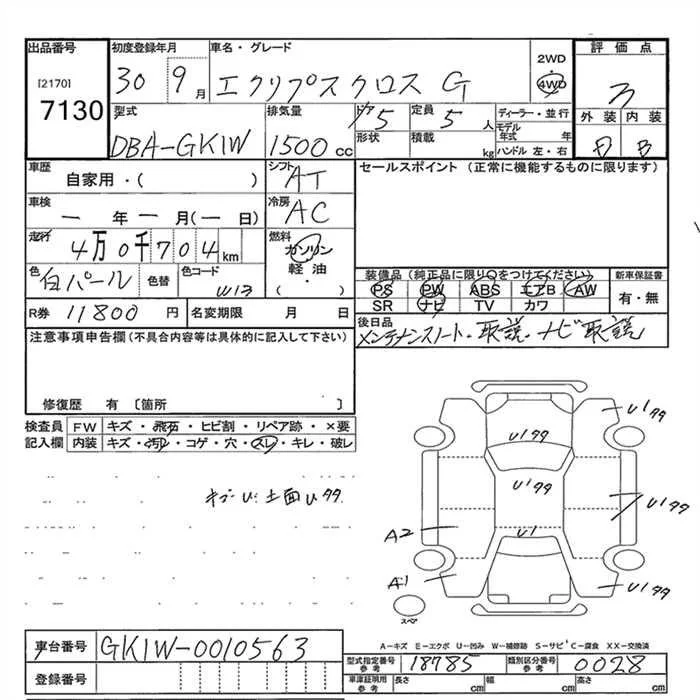 出品番号 初度登録年月 車名・グレード 評価点
[2170] 30 9月 エクリプスクロス G 2WD 4WD 3
7130 型式 排気量 ドア 5 定員 5人 ディーラー・並行 外装 内装
DBA-GK1W 1500cc 形状 積載 kg モデル年式 年 ハンドル 左・右 B
車歴 シフト AT セールスポイント (正常に機能するものに限ります)
自家用・( )
車検 冷房 AC
一年一月(一日)
走行 4万0千704km 燃料 ガソリン
軽油・( )
色 白パール 色替 色コード W13
装備品(純正品に限り○をつけてください) 新車保証書
PS PW ABS エアB AW 有・無
SR ナビ TV カワ
R券 11800円 名変期限 月 日
後日品
メンテナンスノート・取説・ナビ取説
注意事項申告欄(不具合内容等は具体的に記入して下さい)
修復歴 有〔箇所 〕
検査員 FW キズ・飛石・ヒビ割・リペア跡・×要
記入欄 内装 キズ・汚レ・コゲ・穴・スレ・キレ・破レ
U1
A2
A1
スペア
A-キズ E-エクボ U-凹み W-補修跡 S-サビ C-腐食 XX-交換済
車台番号 GK1W-0010563
型式指定番号 参考 18785 類別区分番号 参考 0028
登録番号
車庫証明用 参考 長さ cm 幅 cm 高さ cm